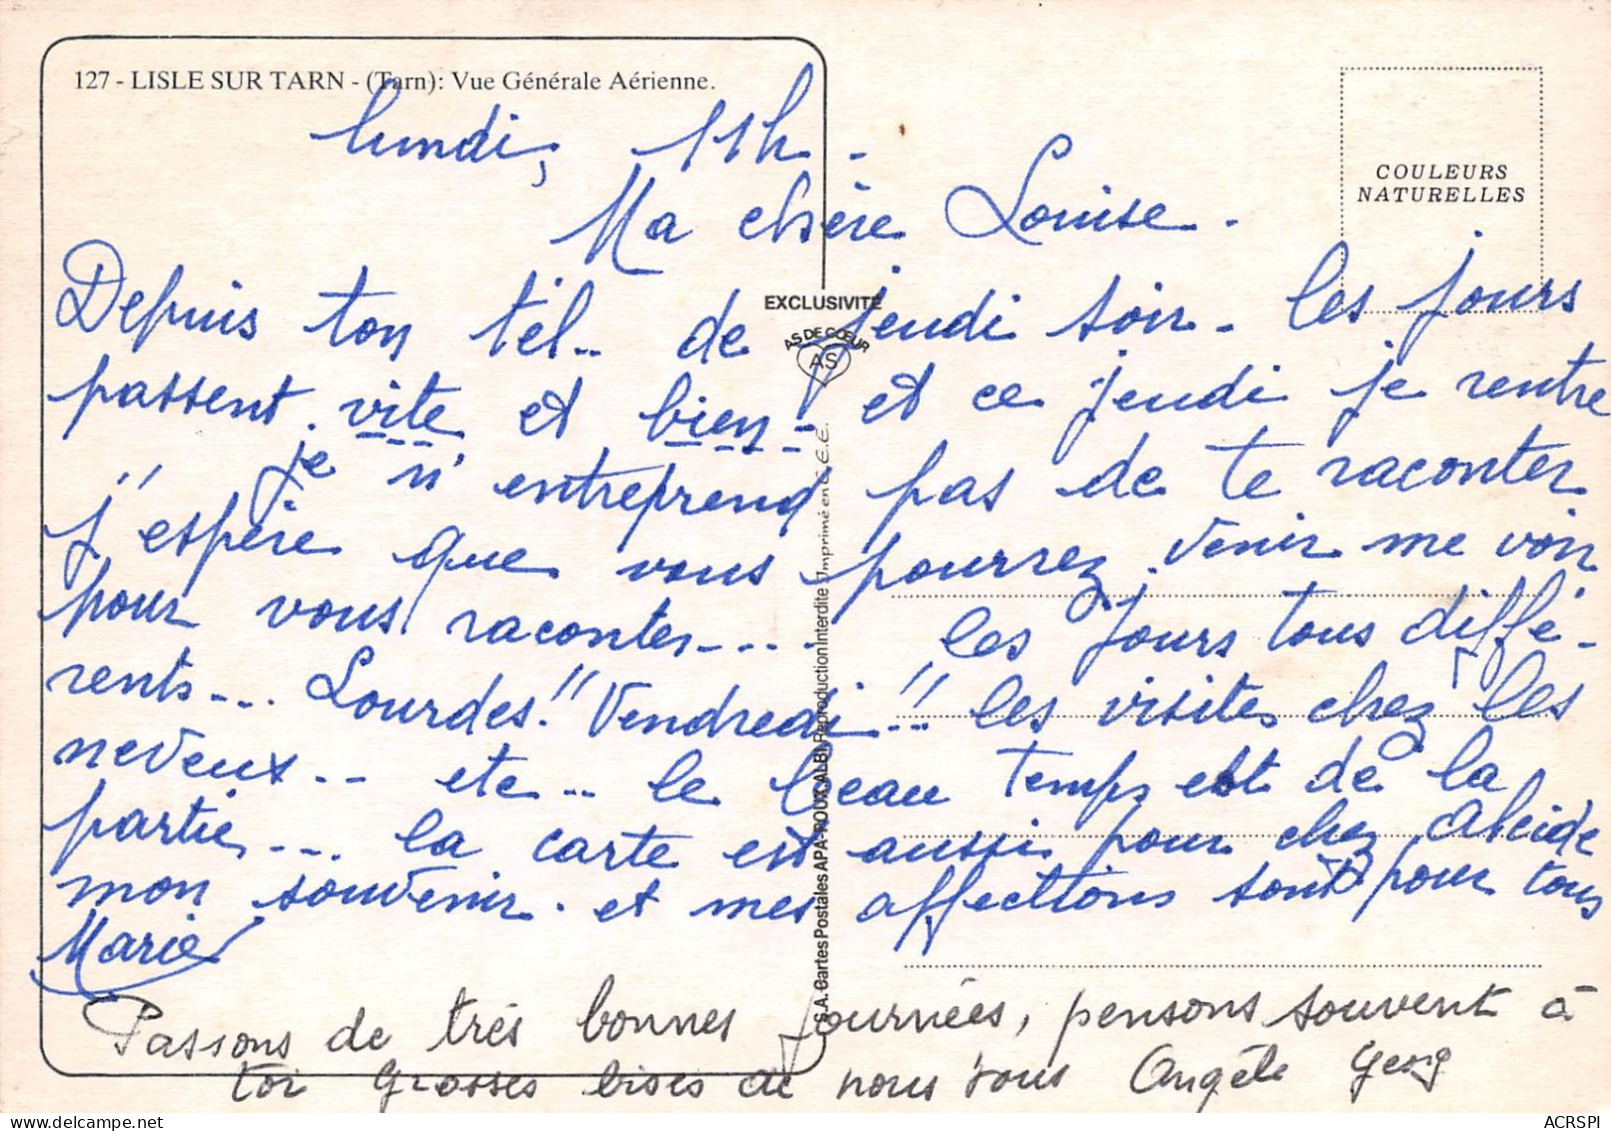 127 - LISLE SUR TARN - (Tarn): Vue Générale Aérienne.
COULEURS
NATURELLES
lundi, 11h -
Ma chère Louise -
Depuis ton tél.. de jeudi soir - les jours
passent vite et bien - et ce jeudi je rentre
je n'entreprend pas de te raconter
j'espère que vous pourrez venir me voir
pour vous raconter---- les jours tous diffé-
rents--- Lourdes!! Vendredi!! les visites chez les
neveux-- etc.. le beau temps est de la
partie--- la carte est aussi pour chez Alcide
mon souvenir. et mes affections sont pour tous
Marie
Passons de très bonnes journées, pensons souvent à
toi grosses bises de nous tous Angèle Georg
EXCLUSIVITÉ
AS DE CŒUR
AS
S.A. Cartes Postales APA-POUX, ALBI. Reproduction Interdite Imprimé en C.E.E.
ACRSPI